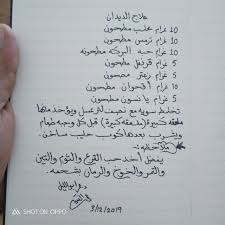 علاج الديدان
10 غرام محلب مطحون
10 غرام ترمس مطحون
10 غرام حبة البركه مطحونه
5 غرام قرنفل مطحون
5 غرام زعتر مطحون
10 غرام أقحوان مطحون
5 غرام يانسون مطحون
تخلط سويه مع نصف لة عسل ويؤخذ منها
ملعقه كبيرة (ملعقه كبيرة) قبل كل وجبة طعام
ويشرب بعدها كوب حليب ساخن.
ملاحظه:
يفضل أخذ حب القرع والثوم والتين
والتمر والخوخ والرمان بشحمه.
3/2/2019
SHOT ON OPPO